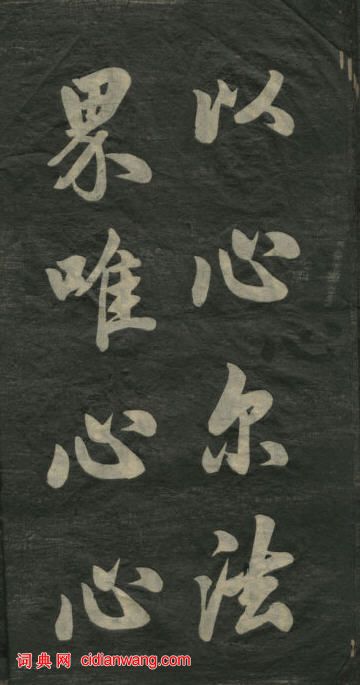 以心尔法
界唯心心
词典网 cidianwang.com